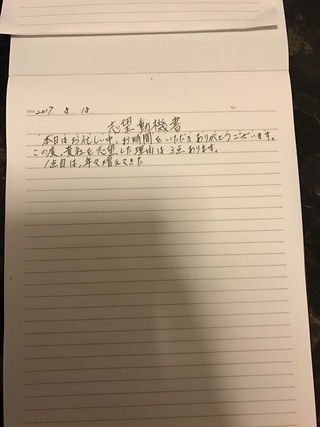 2017. 8. 18.
志望動機書
本日はお忙しい中、お時間をいただきありがとうございます。
この度、貴社を志望した理由は3点あります。
1点目は、年々増えてきた